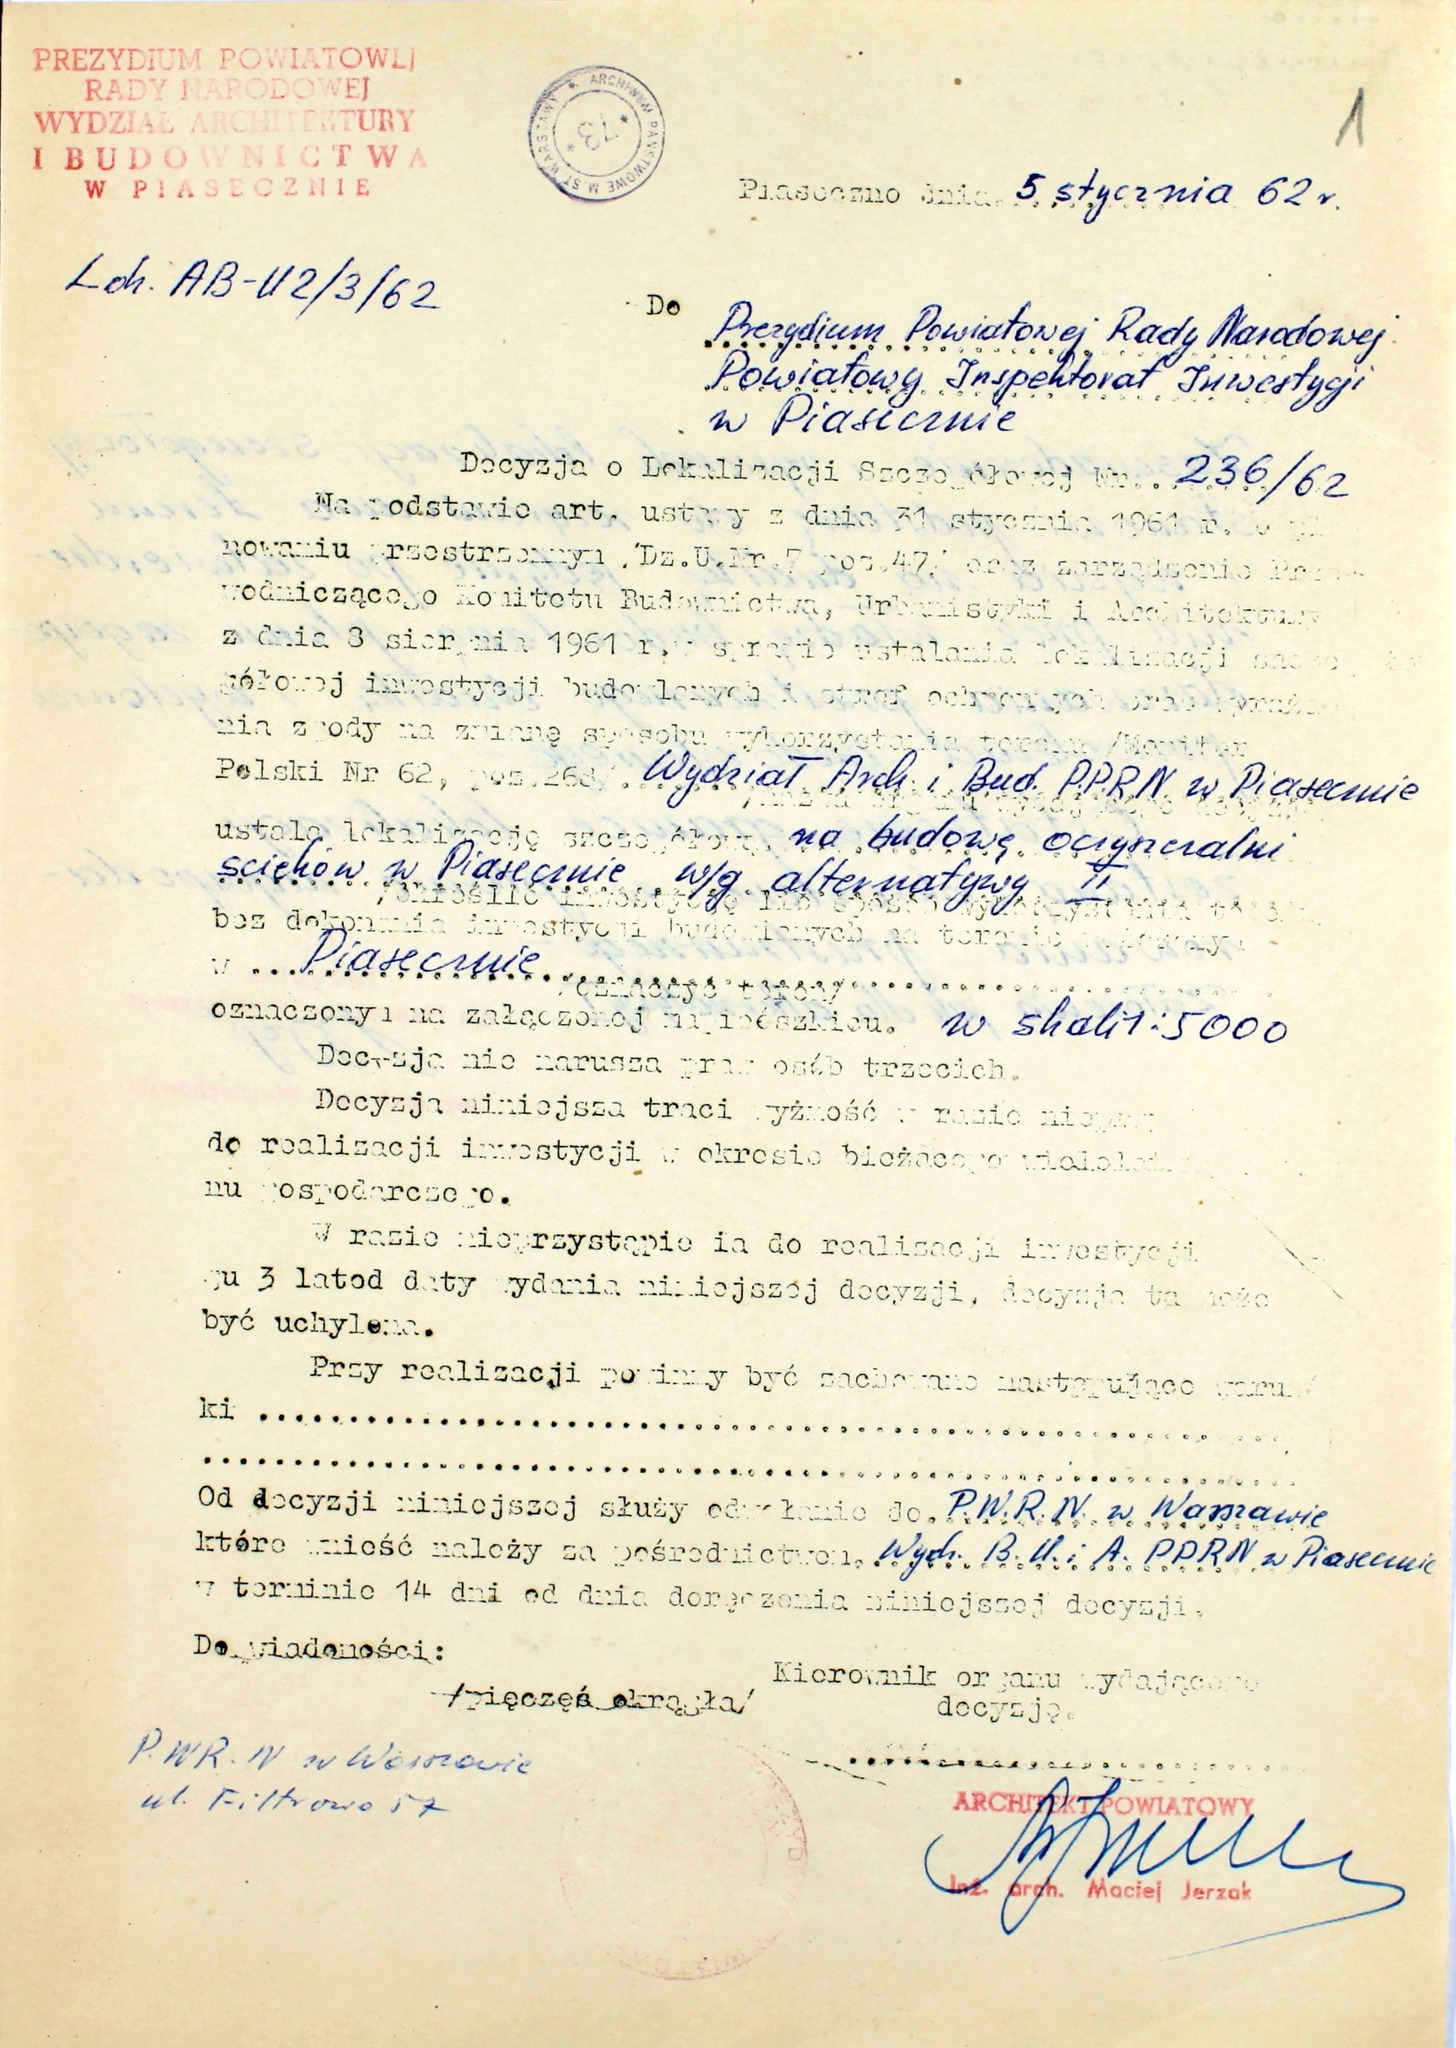 PREZYDIUM POWIATOWEJ
RADY NARODOWEJ
WYDZIAŁ ARCHITEKTURY
I BUDOWNICTWA
W PIASECZNIE
ARCHIWUM PAŃSTWOWE M ST WARSZAWY
* 73 *
1
Piaseczno dnia. 5 stycznia 62 r.
L.dz. AB-U2/3/62
Do
Prezydium Powiatowej Rady Narodowej
Powiatowy Inspektorat Inwestycji
w Piasecznie
Decyzja o Lokalizacji Szczegółowej Nr. 236/62
Na podstawie art. ustawy z dnia 31 stycznia 1961 r. o pla
nowaniu przestrzennym /Dz.U.Nr.7 poz.47/ oraz zarządzenie Prze
wodniczącego Komitetu Budownictwa, Urbanistyki i Architektury
z dnia 8 sierpnia 1961 r.w sprawie ustalania lokalizacji szcze
gółowej inwestycji budowlanych i stref ochronnych oraz wyraże
nia zgody na zmianę sposobu wykorzystania terenu /Monitor
Polski Nr 62, poz.268/. Wydział Arch. i Bud. P.P.R.N. w Piasecznie
ustala lokalizację szczegółową na budowę oczyszczalni
ścieków w Piasecznie w/g alternatywy II
/określić inwestycję lub sposób wykorzystania terenu
bez dokonania inwestycji budowlanych na terenie
w ... Piasecznie ..............................
/oznaczyć teren/
oznaczonym na załączonej mapie/szkicu. w skali 1:5000
Decyzja nie narusza praw osób trzecich.
Decyzja niniejsza traci ważność w razie
do realizacji inwestycji w okresie bieżącego
nu gospodarczego.
W razie nieprzystąpienia do realizacji inwestycji
gu 3 latod daty wydania niniejszej decyzji, decyzja ta może
być uchylona.
Przy realizacji powinny być zachowane następujące warun/
ki ..............................................................
..............................................................
Od decyzji niniejszej służy odwołanie do. P.W.R.N. w Warszawie
które wnieść należy za pośrednictwem. Wydz. B.U. i A. PPRN w Piasecznie
w terminie 14 dni od dnia doręczenia niniejszej decyzji.
Do wiadomości:
Kierownik organu wydającego
/pięczęś okrągła/
decyzję.
P.W.R.N w Warszawie
ul. Filtrowa 57
ARCHITEKT POWIATOWY
Inż. arch. Maciej Jerzak